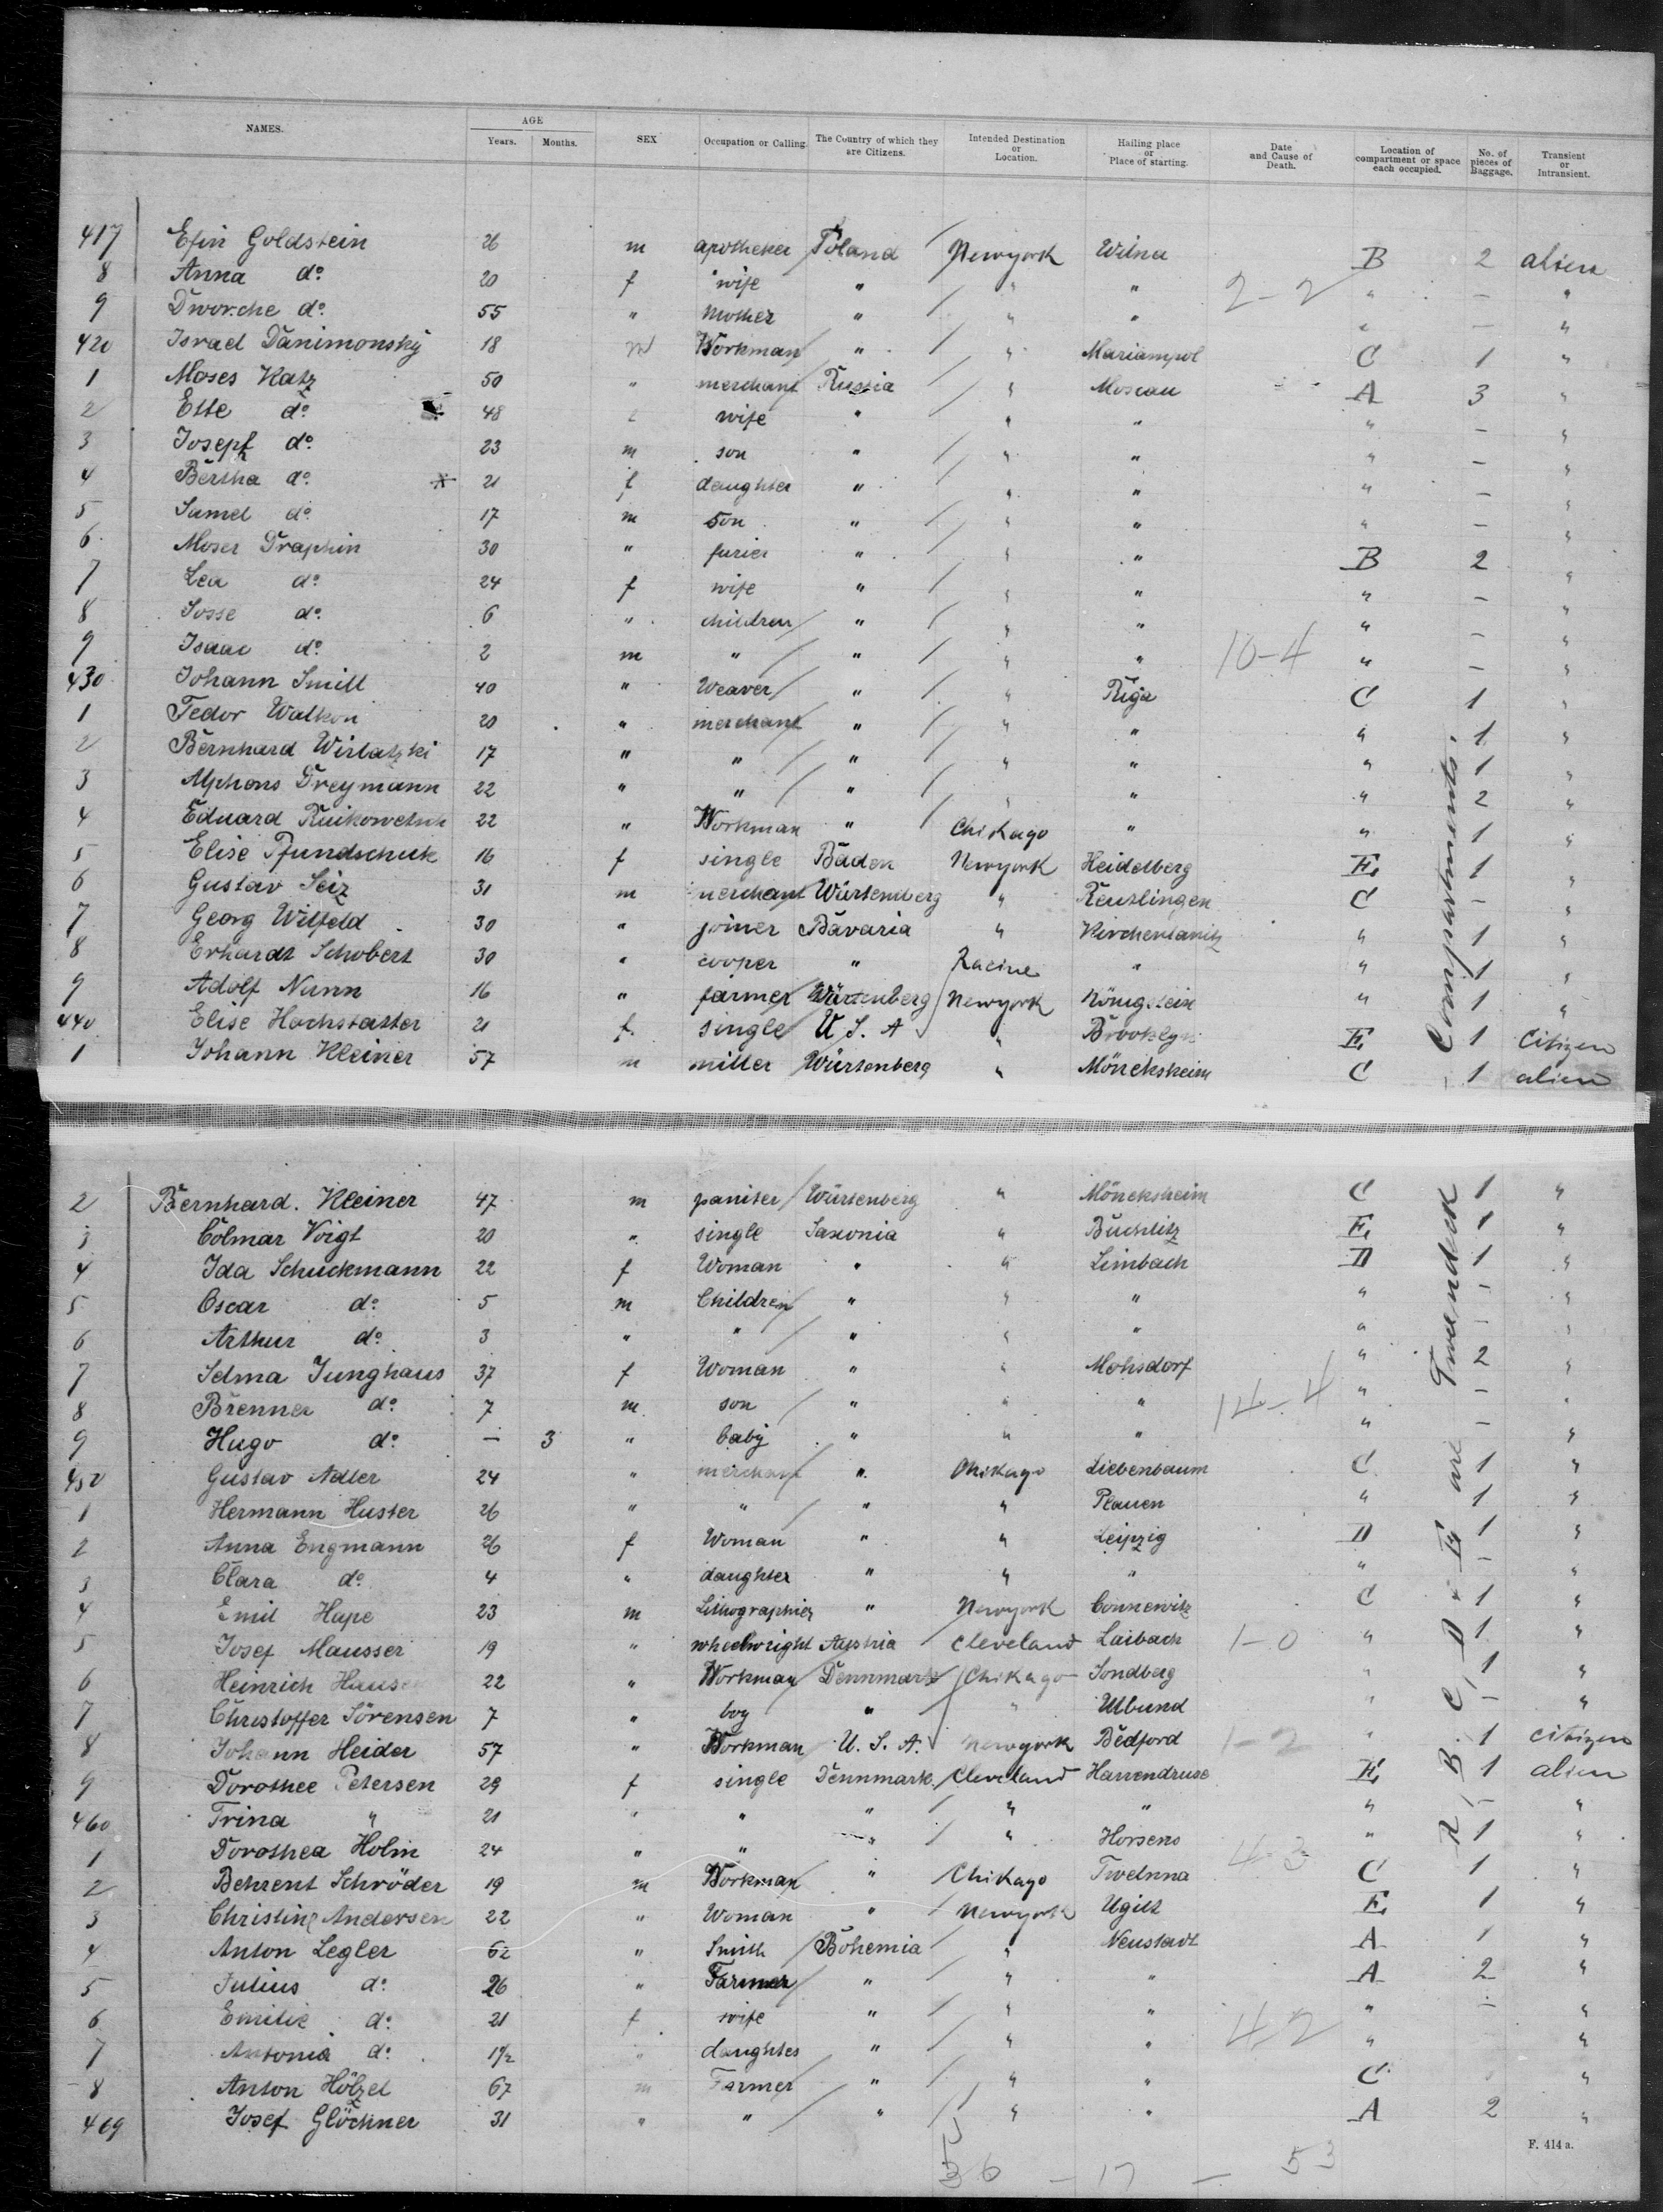 NAMES. AGE Years. Months. SEX Occupation or Calling. The Country of which they are Citizens. Intended Destination or Location. Hailing place or Place of starting. Date and Cause of Death. Location of compartment or space each occupied. No. of pieces of Baggage. Transient or Intransient.
417 Efin Goldstein 26 m apotheker Poland Newyork Wilna B 2 alien
8 Anna do. 20 f wife " " " 2-2 " — "
9 Dworche do. 55 " mother " " " " — "
420 Israel Danimonsky 18 m Workman " " Mariampol C 1 "
1 Moses Katz 50 " merchant Russia " Moscau A 3 "
2 Ette do. 48 wife " " " " — "
3 Josepf do. 23 m son " " " " — "
4 Bertha do. 21 f daughter " " " " — "
5 Samel do. 17 m son " " " " — "
6 Moser Draphin 30 " furier " " " B 2 "
7 Lea do. 24 f wife " " " " — "
8 Sosse do. 6 " children " " " " — "
9 Isaac do. 2 m " " " " 10-4 " — "
430 Johann Smill 40 " Weaver " " Riga C 1 "
1 Fedor Walkon 20 " merchant " " " " 1 "
2 Bernhard Wirlatzki 17 " " " " " " 1 "
3 Alphons Dreymann 22 " " " " " " 2 "
4 Eduard 22 " Workman " Chikago " " 1 "
5 Elise Pfundschuk 16 f single Baden Newyork Heidelberg E 1 "
6 Gustav Seiz 31 m merchant Würtemberg " Reutlingen C — "
7 Georg Wilfeld 30 " joiner Bavaria " Kirchenlanitz " 1 "
8 Erhardt Schobert 30 " cooper " Racine " " 1 "
9 Adolf Nann 16 " farmer Würtenberg Newyork Königstein " 1 "
440 Elise Hochstatter 21 f. single U. S. A " Brooklyn E 1 Citizen
1 Johann Kleiner 57 m miller Würtenberg " Mönchsheim C 1 alien
2 Bernhard. Kleiner 47 m paniter Würtenberg " Mönchsheim C 1 "
3 Colmar Voigt 20 " single Saxonia " Buchlitz E 1 "
4 Ida Schuckmann 22 f Woman " " Limbach D 1 "
5 Oscar do. 5 m Children " " " " — "
6 Arthur do. 3 " " " " " " — "
7 Selma Junghaus 37 f Woman " " Mohsdorf " 2 "
8 Brenner do. 7 m son " " " 14-4 " — "
9 Hugo do. — 3 " baby " " " " — "
450 Gustav Adler 24 " merchant " Chikago Liebenbaum C 1 "
1 Hermann Huster 26 " " " " Plauen " 1 "
2 Anna Engmann 26 f Woman " " Leipzig D 1 "
3 Clara do. 4 " daughter " " " " — "
4 Emil Hape 23 m Lithographier " Newyork Connewitz C 1 "
5 Josef Mausser 19 " wheelwright Austria Cleveland Laibach 1-0 " 1 "
6 Heinrich 22 " Workman Dennmark Chikago Sondberg " 1 "
7 Christoffer Sörensen 7 " boy " " Ulbund " — "
8 Johann Heider 57 " Workman U. S. A. Newyork Bedford 1-2 " 1 citizen
9 Dorothee Petersen 29 f single Dennmark. Cleveland Harrendruse E 1 alien
460 Trina " 21 " " " " " " — "
1 Dorothea Holm 24 " " " " Horsens 4-3 " 1 "
2 Behrent Schröder 19 m Workman " Chikago Twelnna C 1 "
3 Christine Andersen 22 " Woman " Newyork Ugilt E 1 "
4 Anton Legler 62 " Smith Bohemia " Neustadt A 1 "
5 Julius do. 26 " Farmer " " " A 2 "
6 Emilie do. 21 f wife " " " 4-2 " — "
7 Antonia do. 1 1/2 " daughter " " " " "
8 Anton Hölzel 67 m Farmer " " " C "
469 Josef Glöckner 31 " " " " " A 2 "
A, B, C, D & E are Tweendeck Compartments.
36 — 17 — 53
F. 414 a.